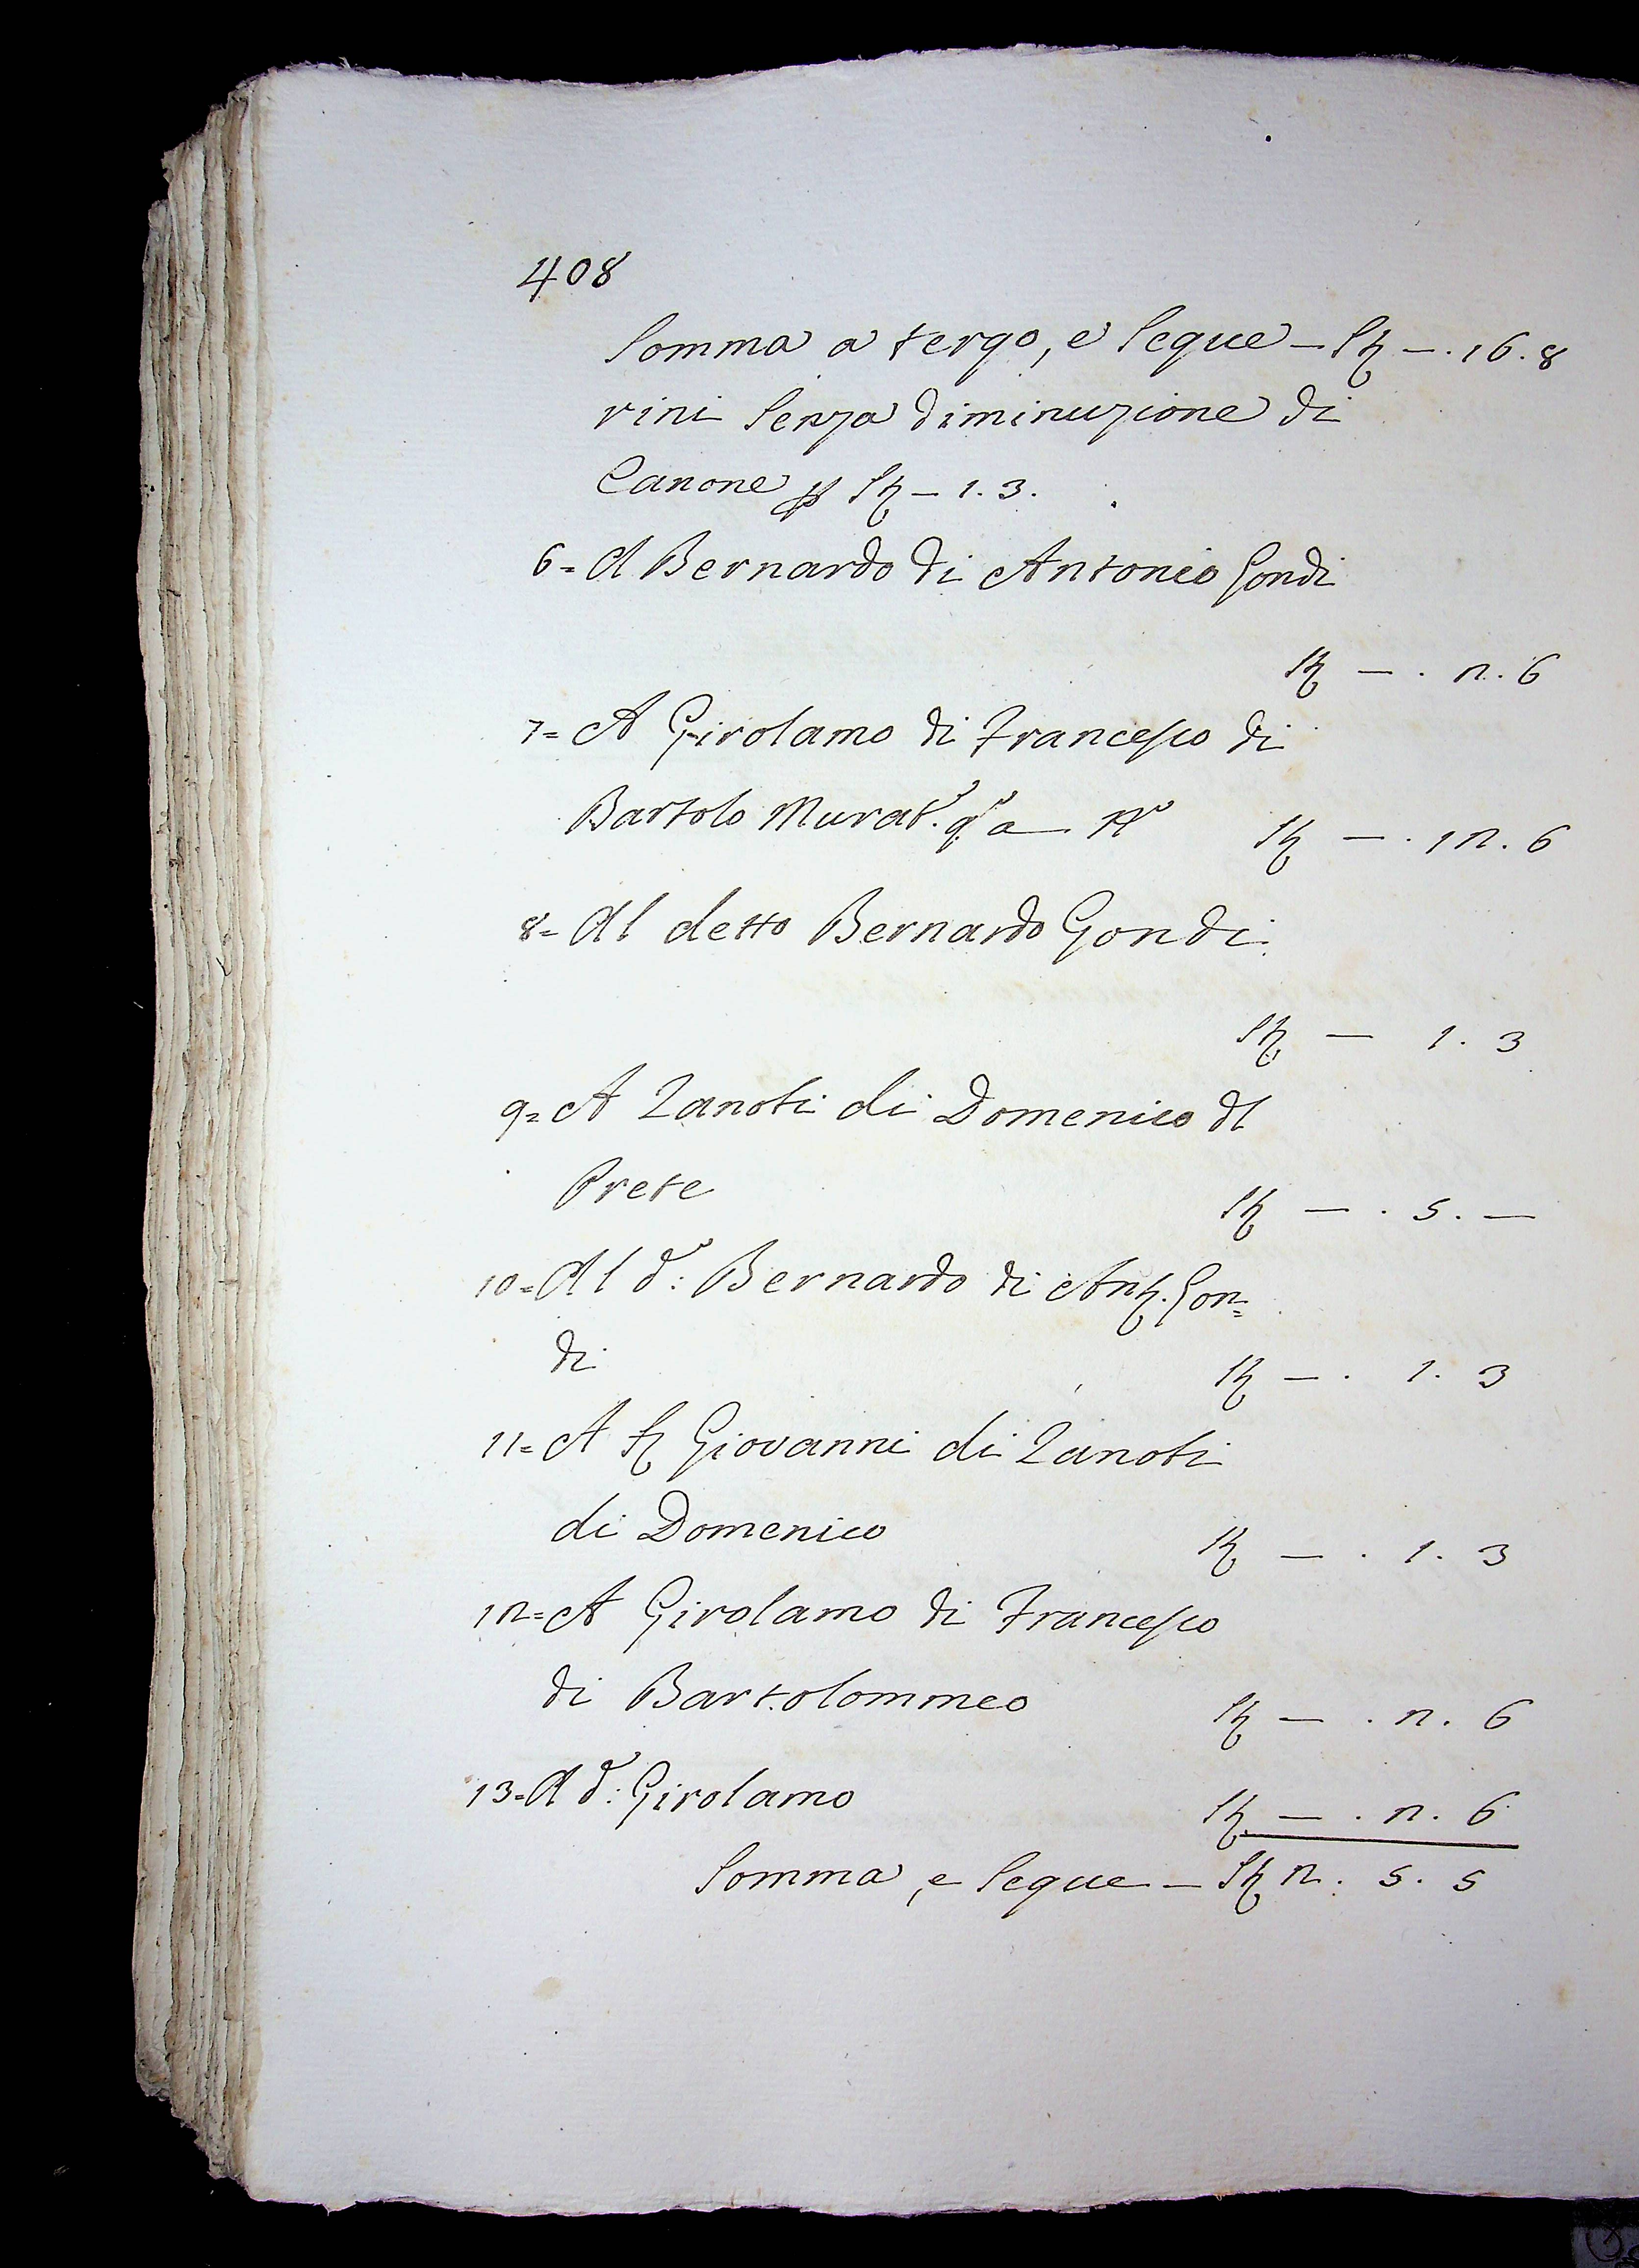 408
Somma a tergo, e segue — St — . 16. 8
rini senza diminuzione di
Canone p St — 1. 3.
6= A Bernardo di Antonio Gondi
St — . 2. 6
7= A Girolamo di Francesco di
Bartolo Murat.e q.a St — . 12. 6
8= Al detto Bernardo Gondi
St — 1. 3
9= A Zanobi di Domenico dl
Prete St — . 5. —
10= Al d.o: Bernardo di Ant. Gon=
di St — . 1. 3
11= A Giovanni di Zanobi
di Domenico St — . 1. 3
12= A Girolamo di Francesco
di Bartolommeo St — . 2. 6
13= A d.o: Girolamo St — . 2. 6
Somma, e segue — St 2. 5. 5